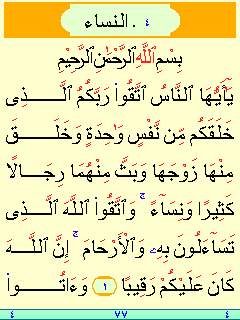 ٤ . النساء
بِسْمِ ٱللَّهِ ٱلرَّحْمَٰنِ ٱلرَّحِيمِ
يَٰٓأَيُّهَا ٱلنَّاسُ ٱتَّقُوا۟ رَبَّكُمُ ٱلَّذِى
خَلَقَكُم مِّن نَّفْسٍ وَٰحِدَةٍ وَخَلَقَ
مِنْهَا زَوْجَهَا وَبَثَّ مِنْهُمَا رِجَالًا
كَثِيرًا وَنِسَآءً ۚ وَٱتَّقُوا۟ ٱللَّهَ ٱلَّذِى
تَسَآءَلُونَ بِهِۦ وَٱلْأَرْحَامَ ۚ إِنَّ ٱللَّهَ
كَانَ عَلَيْكُمْ رَقِيبًا ١ وَءَاتُوا۟
٤ ٧٧ ٤